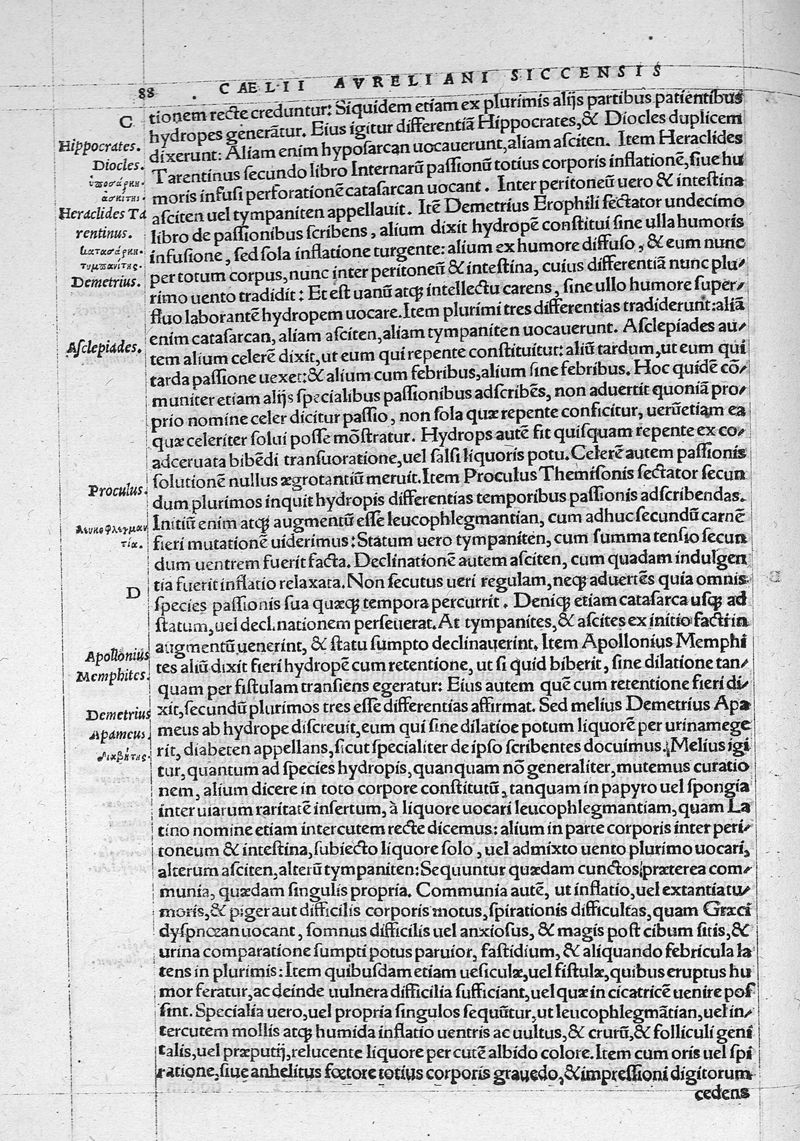 88 CAELII AVRELIANI SICCENSIS
C
Hippocrates.
Diocles.
ὑποσάρκα.
ἀσκίτης.
Heraclides Ta
rentinus.
κατασάρκα.
τυμπανίτης.
Demetrius.
Asclepiades.
Proculus.
λευκοφλεγμαν
τία.
D
Apollonius
Memphites.
Demetrius
Apameus.
διαβήτης.
tionem recte creduntur: Siquidem etiam ex plurimis alijs partibus patientibus
hydropes generãtur. Eius igitur differentiã Hippocrates, & Diocles duplicem
dixerunt: Aliam enim hyposarcan uocauerunt, aliam asciten. Item Heraclides
Tarentinus secundo libro Internarũ passionũ totius corporis inflationẽ, siue hu
moris infusi perforationẽ catasarcan uocant. Inter peritoneũ uero & intestina
asciten uel tympaniten appellauit. Itẽ Demetrius Erophili sectator undecimo
libro de passionibus scribens, alium dixit hydropẽ constitui sine ulla humoris
infusione, sed sola inflatione turgente: alium ex humore diffuso, & eum nunc
per totum corpus, nunc inter peritoneũ & intestina, cuius differentiã nunc plu-
rimo uento tradidit: Et est uanũ atq; intellectu carens, sine ullo humore super-
fluo laborantẽ hydropem uocare. Item plurimi tres differentias tradiderunt: aliã
enim catasarcan, aliam asciten, aliam tympaniten uocauerunt. Asclepiades au-
tem alium celerẽ dixit, ut eum qui repente constituitur: aliũ tardum, ut eum qui
tarda passione uexet: & alium cum febribus, alium sine febribus. Hoc quidẽ cõ-
muniter etiam alijs specialibus passionibus adscribẽs, non aduertit quoniã pro-
prio nomine celer dicitur passio, non sola quæ repente conficitur, uerũetiam ea
quæ celeriter solui posse mõstratur. Hydrops autẽ fit quisquam repente ex co-
adceruata bibẽdi transuoratione, uel salsi liquoris potu. Celerẽ autem passionis
solutionẽ nullus ægrotantiũ meruit. Item Proculus Themisonis sectator secun
dum plurimos inquit hydropis differentias temporibus passionis adscribendas.
Initiũ enim atq; augmentũ esse leucophlegmantian, cum adhuc secundũ carnẽ
fieri mutationẽ uiderimus: Statum uero tympaniten, cum summa tensio secun
dum uentrem fuerit facta. Declinationẽ autem asciten, cum quadam indulgen
tia fuerit inflatio relaxata. Non secutus ueri regulam, neq; aduertẽs quia omnis
species passionis sua quæq; tempora percurrit. Deniq; etiam catasarca usq; ad
statum, uel declinationem perseuerat. At tympanites, & ascites ex initio facti in
augmentũ uenerint, & statu sumpto declinauerint. Item Apollonius Memphi
tes aliũ dixit fieri hydropẽ cum retentione, ut si quid biberit, sine dilatione tan-
quam per fistulam transiens egeratur: Eius autem quẽ cum retentione fieri di-
xit, secundũ plurimos tres esse differentias affirmat. Sed melius Demetrius Apa
meus ab hydrope discreuit, eum qui sine dilatiõe potum liquorẽ per urinam ege
rit, diabeten appellans, sicut specialiter de ipso scribentes docuimus. Melius igi
tur, quantum ad species hydropis, quanquam nõ generaliter, mutemus curatio
nem, alium dicere in toto corpore constitutũ, tanquam in papyro uel spongia
inter uiarum raritatẽ insertum, à liquore uocari leucophlegmantiam, quam La
tino nomine etiam intercutem recte dicemus: alium in parte corporis inter peri-
toneum & intestina, subiecto liquore solo, uel admixto uento plurimo uocari,
alterum asciten, alterũ tympaniten: Sequuntur quædam cunctos, præterea com-
munia, quædam singulis propria. Communia autẽ, ut inflatio, uel extantia tu-
moris, & piger aut difficilis corporis motus, spirationis difficultas, quam Græci
dyspnœan uocant, somnus difficilis uel anxiosus, & magis post cibum sitis, &
urina comparatione sumpti potus paruior, fastidium, & aliquando febricula la
tens in plurimis: Item quibusdam etiam uesiculæ, uel fistulæ, quibus eruptus hu
mor feratur, ac deinde uulnera difficilia sufficiant, uel quæ in cicatricẽ uenire pos
sint. Specialia uero, uel propria singulos sequũtur, ut leucophlegmãtian, uel in-
tercutem mollis atq; humida inflatio uentris ac uultus, & crurũ, & folliculi geni
talis, uel præputij, relucente liquore per cutẽ albido colore. Item cum oris uel spi
ratione, siue anhelitus fœtore totius corporis grauedo, & impressioni digitorum
cedens